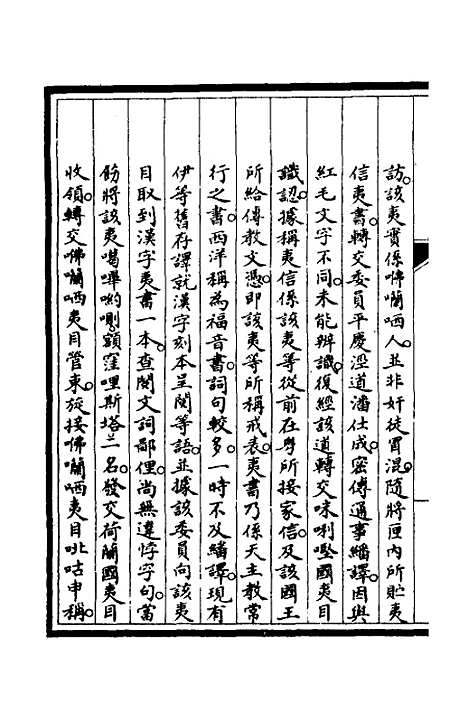 訪該夷實係咈囒哂人並非奸徒冒混隨將匣内所貯夷
信夷書轉交委員平慶涇道潘仕成密傳通事繙譯因與
紅毛文字不同未能辨識復經該道轉交咪唎㗭國夷目
識認據稱夷信係該夷等從前在粤所接家信及該國王
所給傳教文憑即該夷等所稱戒表夷書乃係天主教常
行之書西洋稱為福音書詞句較多一時不及繙譯現有
伊等舊存譯就漢字刻本呈閱等語並據該委員向該夷
目取到漢字夷書一本查閱文詞鄙俚尚無違悖字句當
飭將該夷噶嗶喲㘑額窪哩斯塔二名發交荷蘭國夷目
收領轉交咈囒哂夷目管束旋接咈囒哂夷目吡咕申稱